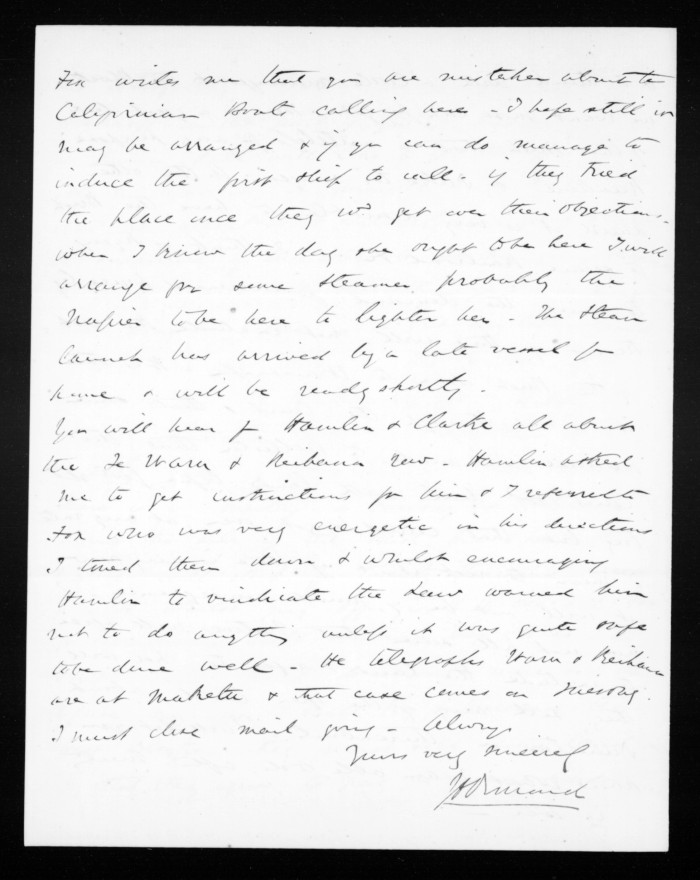 Fox writes me that you are mistaken about the
Californian Boats calling here - I hope still it
may be arranged & if you can do manage to
induce the first ship to call - if they tried
the place once they wd get over their objections.
when I know the day she ought to be here I will
arrange for some steamer probably the
Napier to be here to lighter her - The Steam
Launch has arrived by a late vessel fr
home & will be ready shortly.
You will hear fr Hamlin & Clarke all about
the Te Waru & Reihana row - Hamlin asked
me to get instructions for him & I referred to
Fox who was very energetic in his directions
I toned them down & whilst encouraging
Hamlin to vindicate the Law warned him
not to do anything unless it was quite safe
to be done well - He telegraphs Waru & Reihana
are at Maketu & that case comes on
I must close mail going - Always
Yours very sincerely
JD Ormond